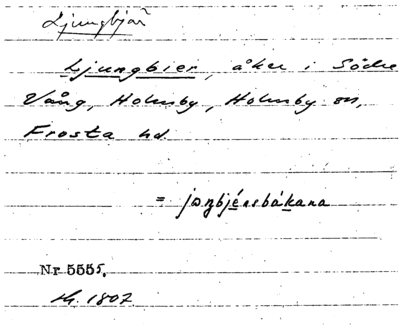 Ljungbjär
Ljungbier, åker i Södre
Vång, Holmby, Holmby sn,
Frosta hd.
= jɔŋbjérsbákana
Nr 5555.
sk. 1807